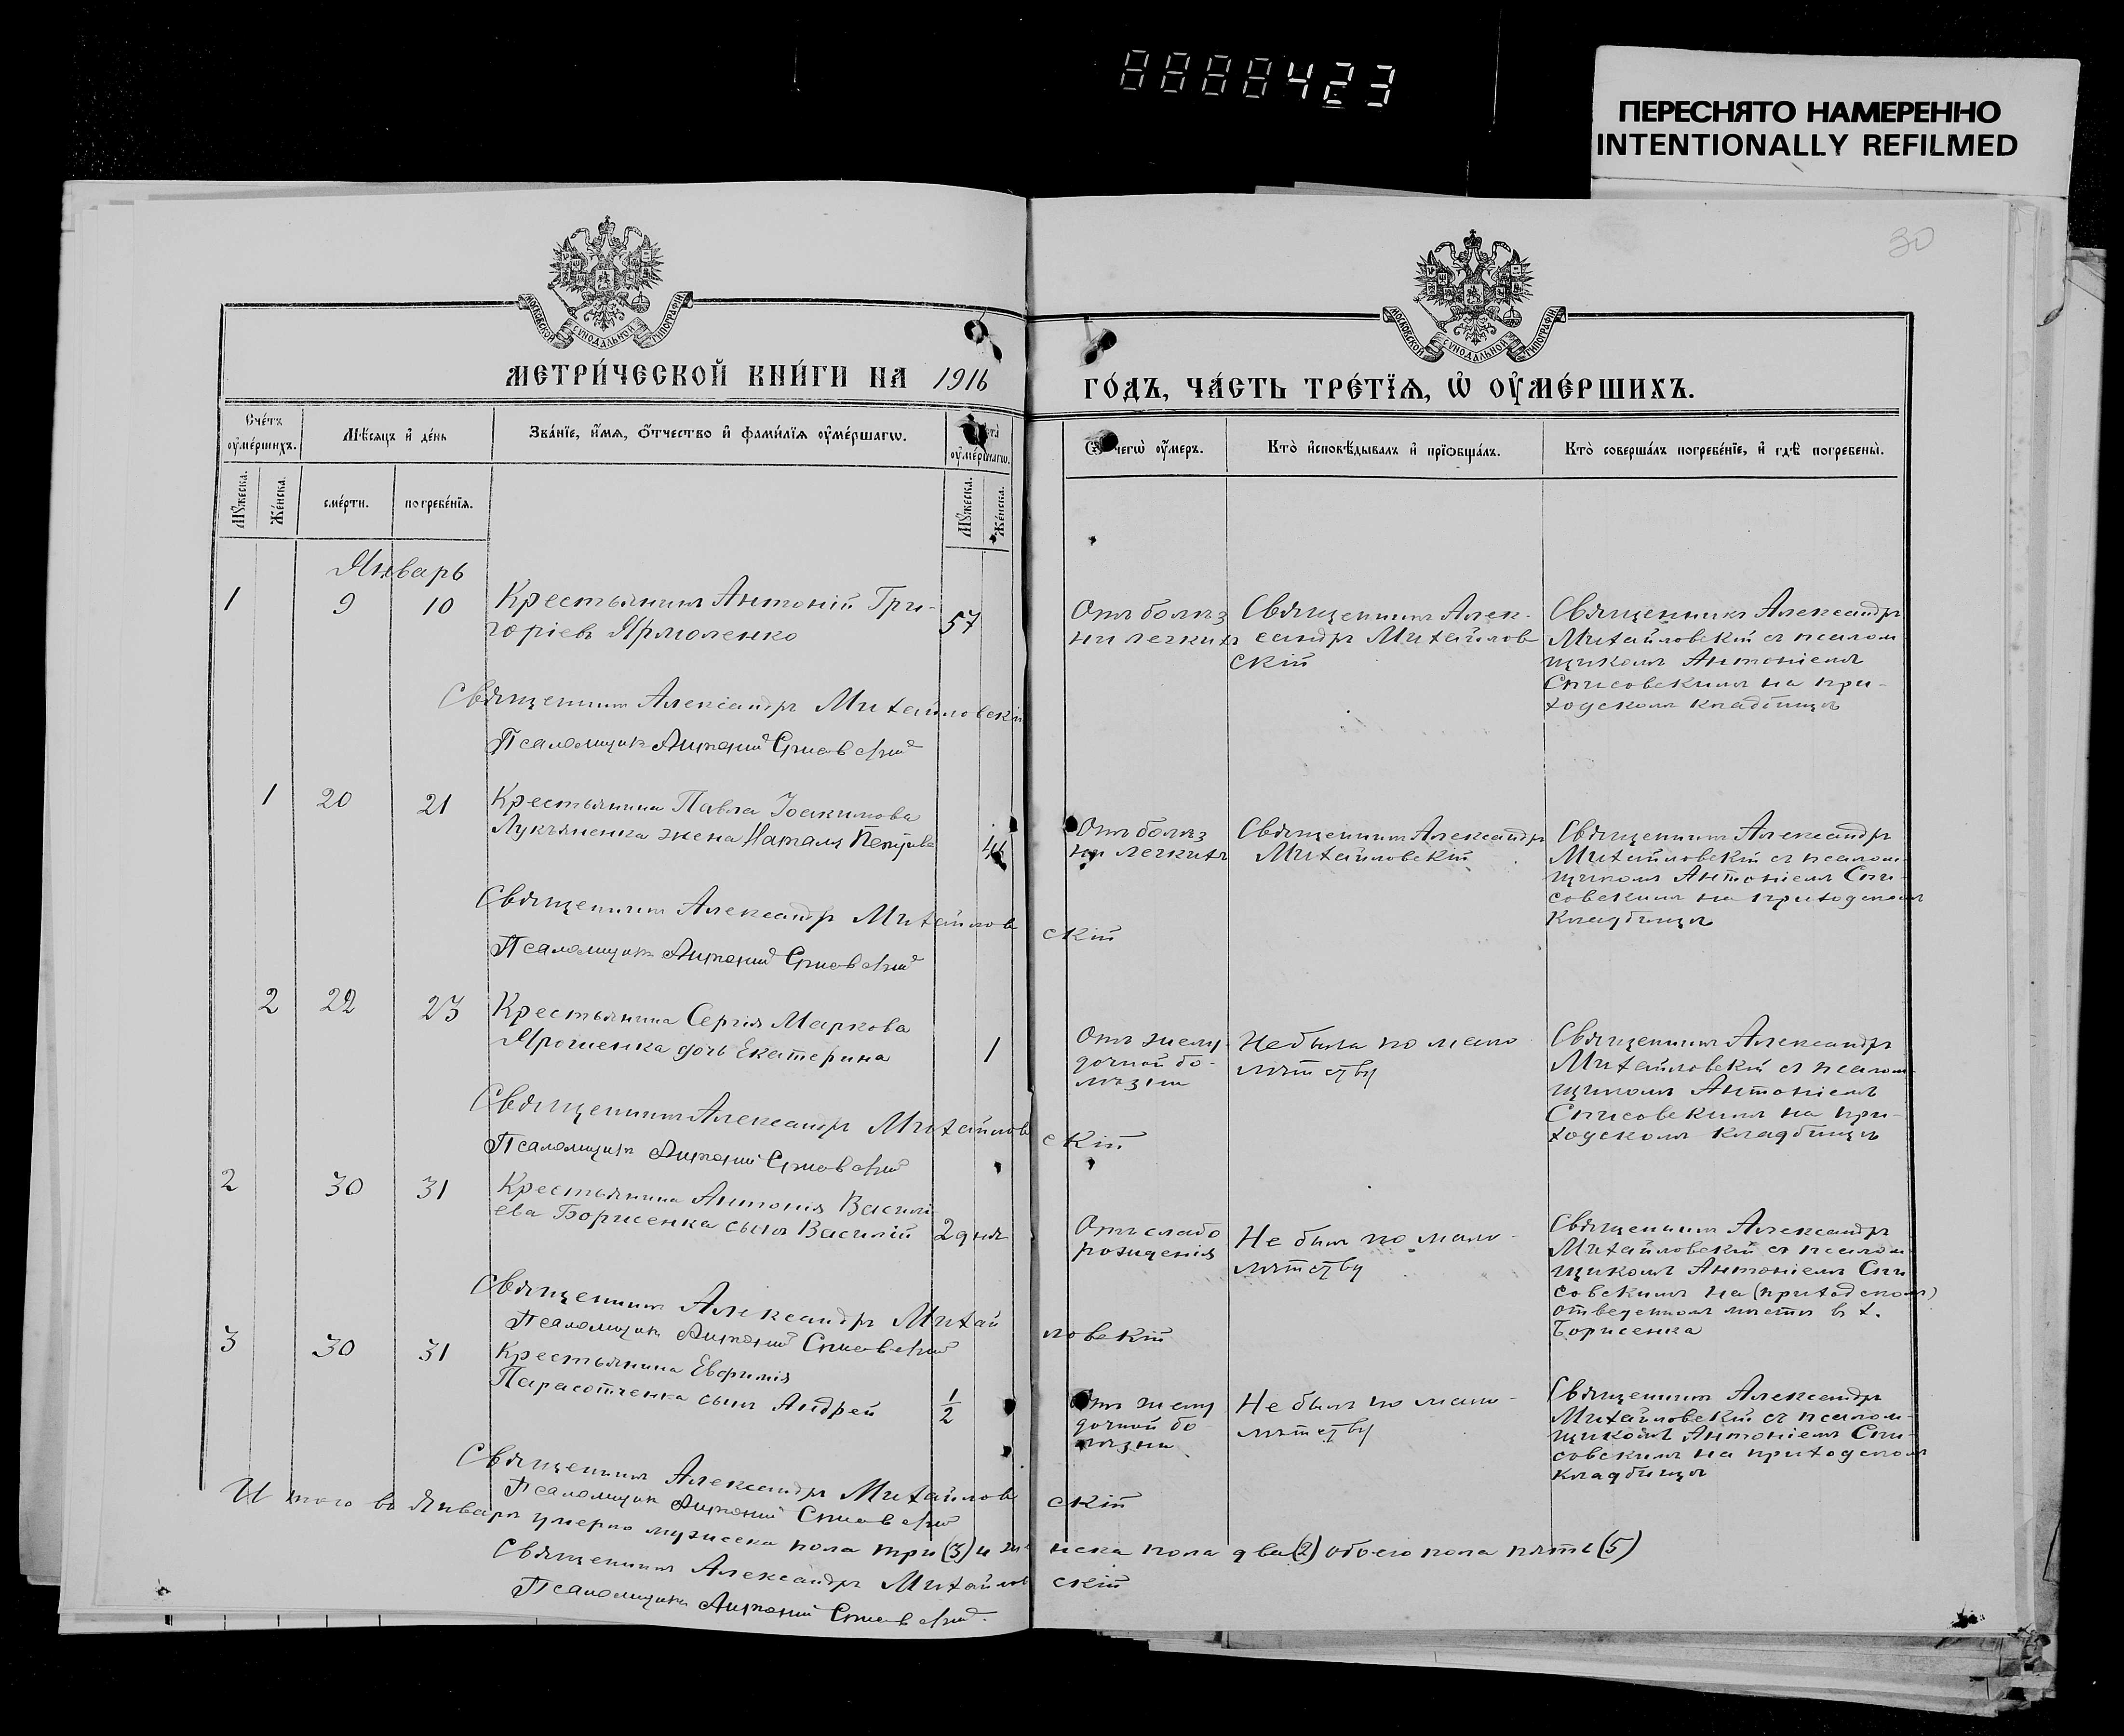 0000423
ПЕРЕСНЯТО НАМЕРЕННО
INTENTIONALLY REFILMED
30
МОСКОВСКОЙ СУНОДАЛЬНОЙ ТИПОГРАФІИ
МОСКОВСКОЙ СУНОДАЛЬНОЙ ТИПОГРАФІИ
МЕТРИ́ЧЕСКОЙ КНИ́ГИ НА 1916
ГО́ДЪ, ЧА́СТЬ ТРЕ́ТЇѦ, Ѡ҆ ОУ҆МЕ́РШИХЪ.
Сче́тъ оу҆ме́ршихъ.
Мѣсяцъ и҆ де́нь
Зва́нїе, и҆́мя, ѻ҆́тчество и҆ фами́лїя оу҆ме́ршагѡ.
оу҆ме́ршагѡ.
чегѡ̀ оу҆́меръ.
Кто̀ и҆сповѣ́дывалъ и҆ прїѡбща́лъ.
Кто̀ соверша́лъ погребе́нїе, и҆ гдѣ̀ погребены̀.
Мꙋ́жеска.
Же́нска.
сме́рти.
погребе́нїя.
Мꙋ́жеска.
Же́нска.
Январь
1 9 10 Крестьянинъ Антоній Гри-
горіевъ Ярмоленко 57
Отъ болѣз
ни легкихъ
Священникъ Алек-
сандръ Михайлов
скій
Священникъ Александръ
Михайловскій съ псалом
щикомъ Антоніемъ
Списовскимъ на при-
ходскомъ кладбищѣ
Священникъ Александръ Михайловскій
Псаломщикъ Антоній Списовскій
1 20 21 Крестьянина Павла Іоакимова
Лукьяненка жена Наталя Петрова
Отъ болѣз
ни легкихъ
Священникъ Александръ
Михайловскій
Священникъ Александръ
Михайловскій съ псалом-
щикомъ Антоніемъ Спи-
совскимъ на приходскомъ
кладбищѣ
Священникъ Александръ Михайлов
скій
Псаломщикъ Антоній Списовскій
2 22 23 Крестьянина Сергія Маркова
Ярошенка дочь Екатерина 1
Отъ желу-
дочной бо-
лѣзни
Не была по мало
лѣтству
Священникъ Александръ
Михайловскій съ псалом-
щикомъ Антоніемъ
Списовскимъ на при-
ходскомъ кладбищѣ
Священникъ Александръ Михайлов
скій
Псаломщикъ Антоній Списовскій
2 30 31 Крестьянина Антонія Василі
ева Борисенка сынъ Василій 2 дня
Отъ слабо
рожденія
Не былъ по мало-
лѣтству
Священникъ Александръ
Михайловскій съ псалом
щикомъ Антоніемъ Спи
совскимъ на (приходскомъ)
отведенномъ мѣстѣ въ х.
Борисенка
Священникъ Александръ Михай
ловскій
Псаломщикъ Антоній Списовскій
3 30 31 Крестьянина Евфимія
Парасотченка сынъ Андрей 1/2
Отъ желу
дочной бо
лѣзни
Не былъ по мало-
лѣтству
Священникъ Александръ
Михайловскій съ псалом-
щикомъ Антоніемъ Спи-
совскимъ на приходскомъ
кладбищѣ
Священникъ Александръ Михайлов
скій
Псаломщикъ Антоній Списовскій
Итого въ Январѣ умерло мужеска пола три (3) и же
нска пола два (2) обоего пола пять (5)
Священникъ Александръ Михайлов
скій
Псаломщикъ Антоній Списовскій.